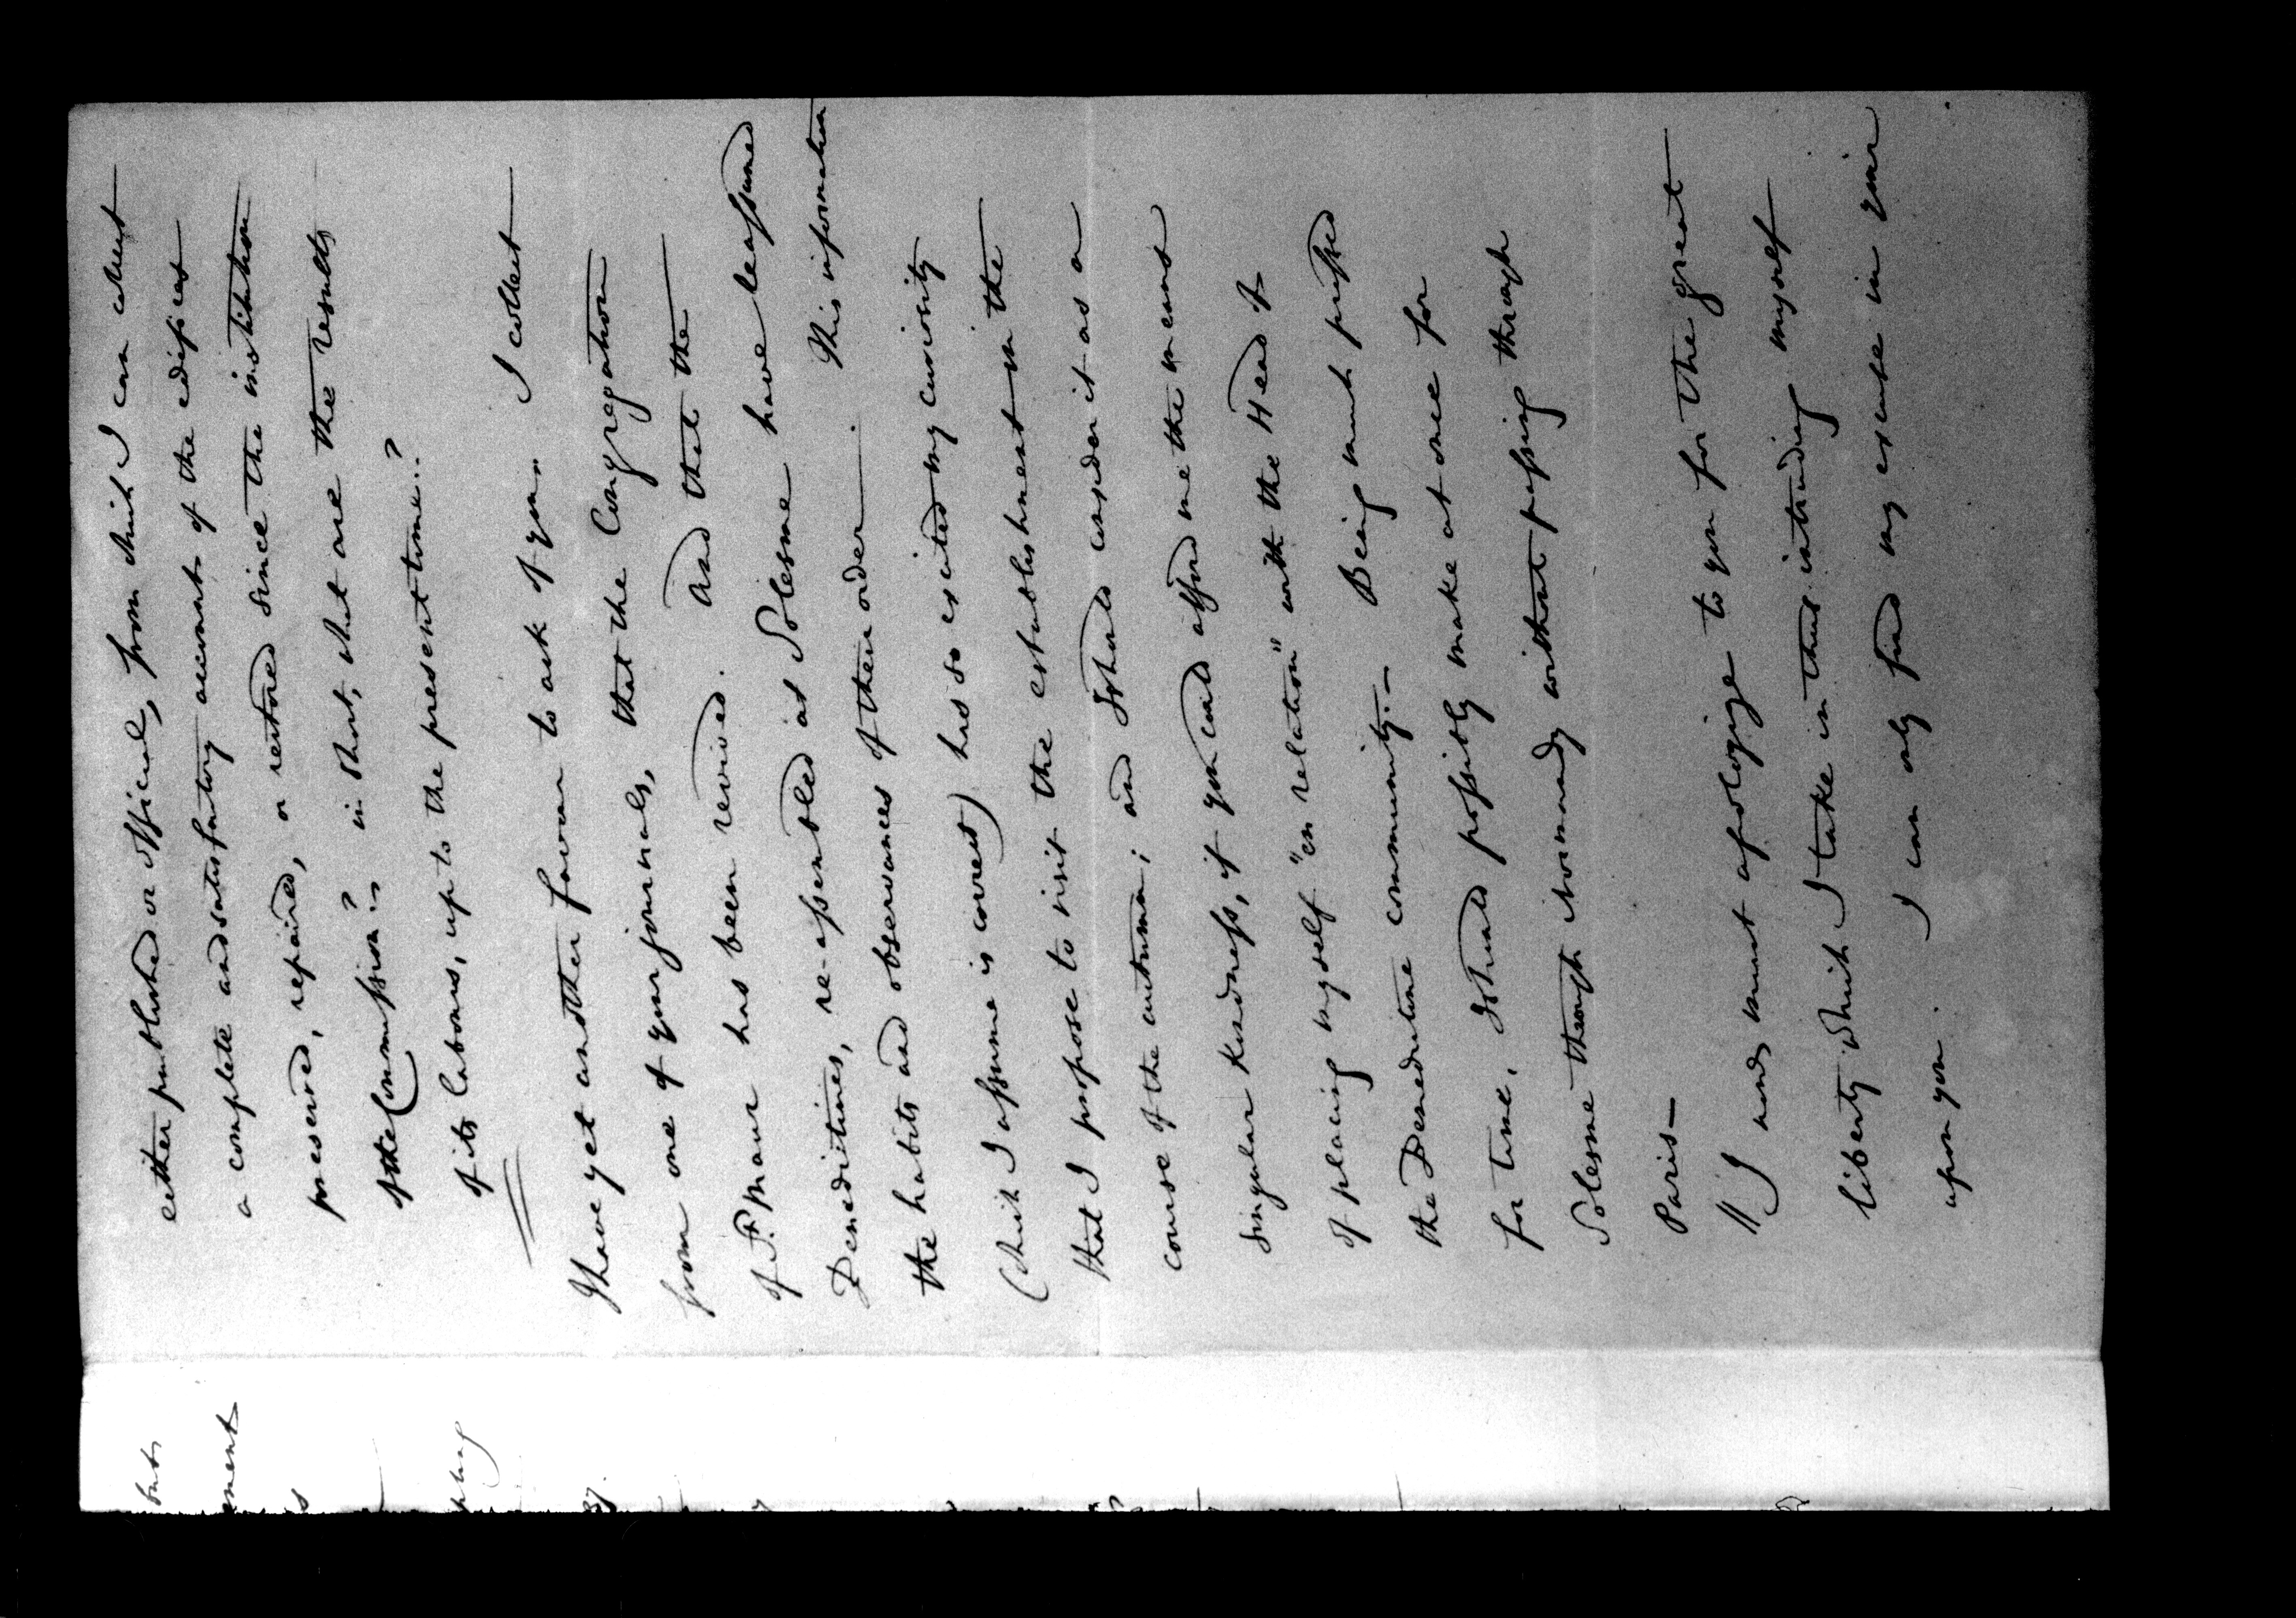 either published or official, from which I can collect
a complete and satisfactory account of the edifices
preserved, repaired, or restored since the institution
of the Commission? — in short, what are the results
of its labours, up to the present time..?
I have yet another favour to ask of you. I collect
from one of your journals, that the Congregation
of St. Maur has been revived. And that the
Benedictines, re-assembled at Solesme have reassumed
the habits and observances of their order. This information
(which I assume is correct) has so excited my curiosity
that I propose to visit the establishment in the
course of the autumn; and should consider it as a
singular kindness, if you could afford me the means
of placing myself "en relation" with the Head of
the Benedictine community. — Being much pressed
for time, I should possibly make at once for
Solesme through Normandy without passing through
Paris —
// I must apologize to you for the great
liberty which I take in thus intruding myself
upon you. I can only find my excuse in your
buts
ement
s
phing
37.